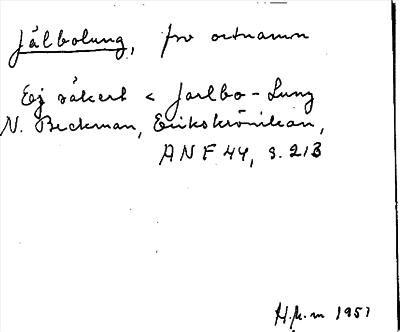 Jälbolung, fsv ortnamn
Ej säkert < Jarlbo-Lung
N. Beckman, Erikskrönikan,
ANF 44, s. 213
H.p.m 1951